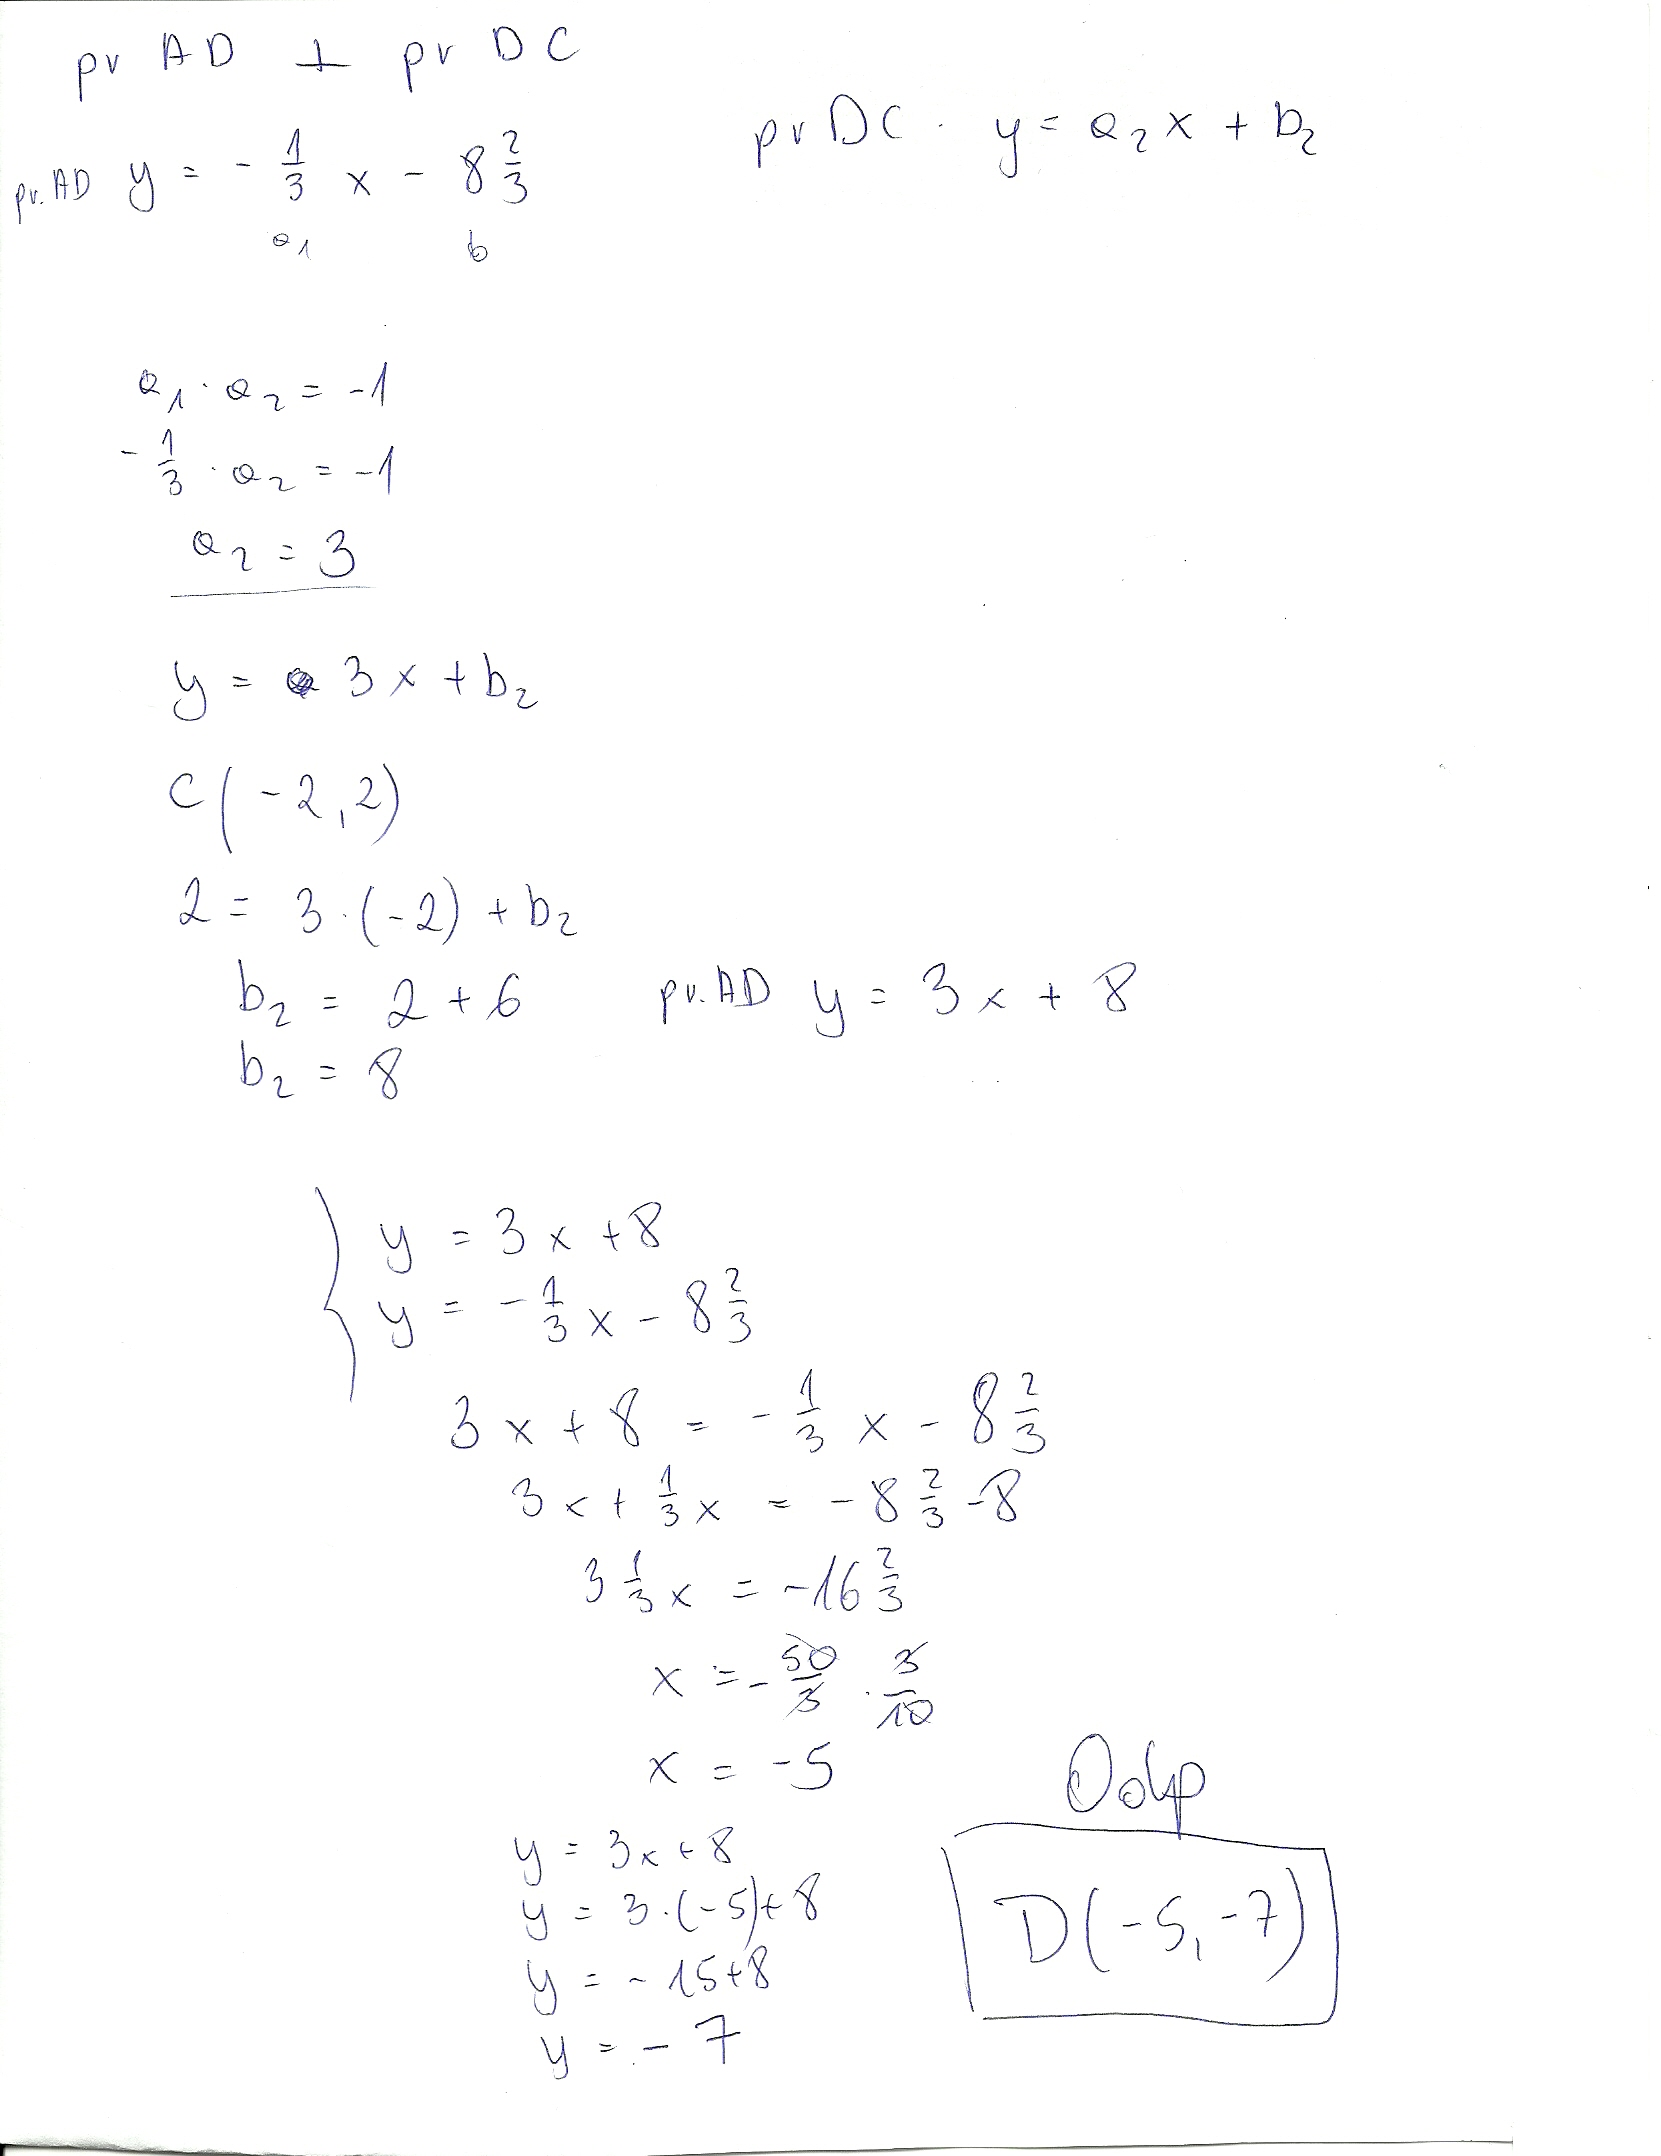 pr AD ⊥ pr DC
pr DC. y = a₂x + b₂
pr. AD y = - 1/3 x - 8 2/3
a₁ b
a₁ · a₂ = -1
- 1/3 · a₂ = -1
a₂ = 3
y = 3x + b₂
C(-2,2)
2 = 3·(-2) + b₂
b₂ = 2 + 6
pr. AD y = 3x + 8
b₂ = 8
y = 3x + 8
y = - 1/3 x - 8 2/3
3x + 8 = - 1/3 x - 8 2/3
3x + 1/3 x = - 8 2/3 - 8
3 1/3 x = -16 2/3
x = - 50/3 · 3/10
x = -5
y = 3x + 8
y = 3·(-5) + 8
y = -15+8
y = -7
Odp
D(-5,-7)